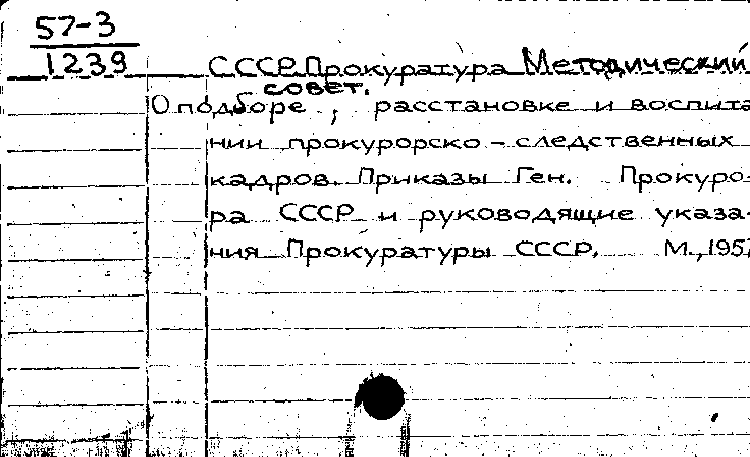 57-3
1239
СССР. Прокуратура Методический
совет.
О подборе, расстановке и воспита
нии прокурорско-следственных
кадров. Приказы Ген. Прокуро-
ра СССР и руководящие указа-
ния Прокуратуры СССР. М.,